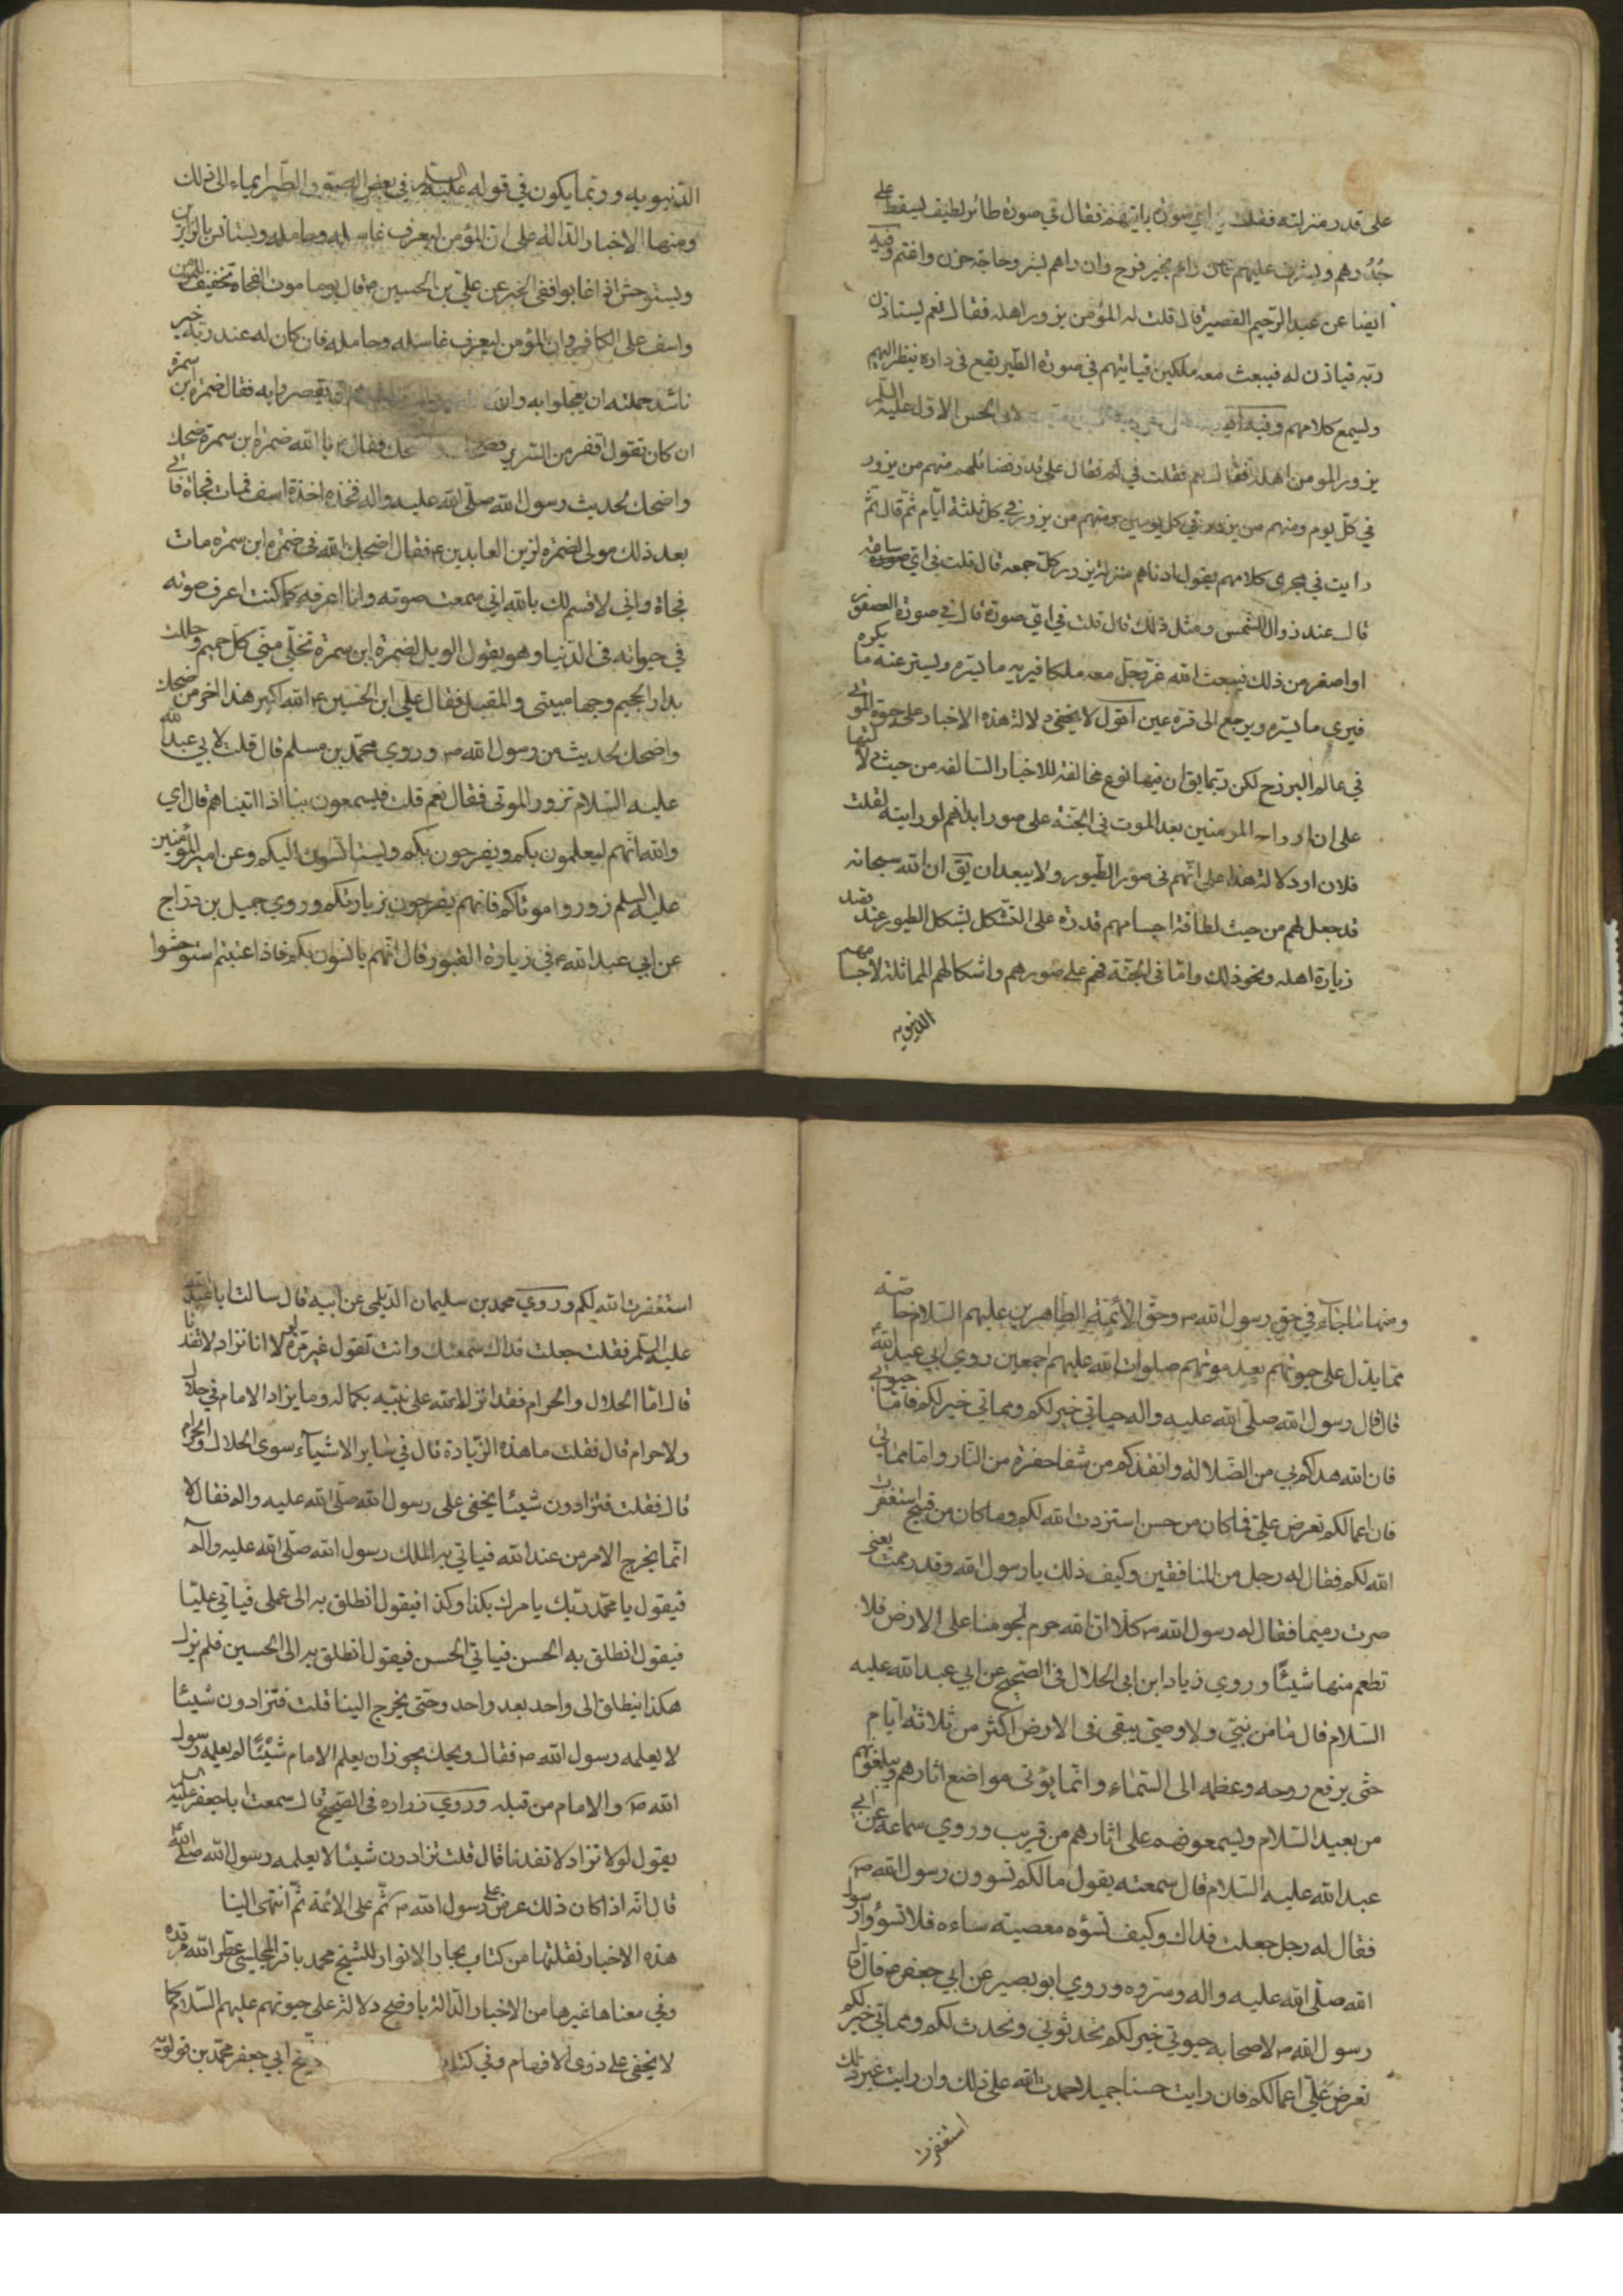 على قدر منزلته فقلت في اي صورة ياتيهم فقال في صورة طائر لطيف يسقط على
جُدُرهم ويشرف عليهم فان راهم بخير فرح وان راهم بشر وحاجة حزن واغتم وفيه
ايضا عن عبد الرحيم القصير قال قلت له المؤمن يزور اهله فقال نعم يستاذن
ربّه فياذن له فيبعث معه ملكين فياتيهم في صورة الطّير يقع في داره ينظر اليهم
ويسمع كلامهم وفيه لابي الحسن الاوّل عليه السّلم
يزور المومن اهله فقال نعم فقلت في كم فقال على قدر فضائلهم منهم من يزور
في كلّ يوم ومنهم من يزور في كل يومين ومنهم من يزور في كل ثلثة ايّام ثم قال ثمّ
رايت في مجرى كلامهم يقول ادناهم منزلة يزور كلّ جمعه قال قلت في اي ساعة
قال عند زوال الشمس ومثل ذلك قال قلت في ايّ صورة قال في صورة العصفور
او اصغر من ذلك فيبعث الله عزّ وجلّ معه ملكا فيريه ما يسّره ويستر عنه ما يكره
فيرى ما يسّره ويرجع الى قرة عين اقول لا يخفى دلالة هذه الاخبار على حيوة الموتى
في عالم البرزخ لكن ربّما يق ان فيها نوع مخالفة للاخبار السّالفه من حيث دلالتها
على ان ارواح المومنين بعد الموت في الجنّة على صور ابدانهم لو رايته لقلت
فلان او دلالة هذا على انّهم في صور الطّيور ولا يبعد ان يق ان الله سبحانه
قد جعل لهم من حيث لطافة اجسامهم قدرة على التّشكّل بشكل الطيور عند قصد
زيارة اهله ونحو ذلك وامّا في الجنّة فهم على صورهم واشكالهم المماثلة لاجسامهم
الدّنيويه
الدّنيويه وربّما يكون في قوله عليه السّلم في بعض الصبور والطّير ايماء الى ذلك
ومنها الاخبار الدّالّة على ان المؤمن ليعرف غاسله وحامله ويستانس بالزاير
ويستوحش اذا غاب وافقى الخبر عن علي بن الحسين ع قال يوما موت الفجاة تخفيف للمؤمن
واسف على الكافر وان المؤمن ليعرف غاسله وحامله فان كان له عند ربّه خير
ناشد حملته ان يعجلوا به وان يقصروا به فقال ضمرة ابن سمرة
ان كان تقول اقفز من السّرير فقال ع يا الله ضمرة ابن سمرة ضحك
واضحك لحديث رسول الله صلّى الله عليه واله فخذه اخذة اسف فمات فجاة فاتى
بعد ذلك مولى لضمره لزين العابدين ع فقال اضحك الله في ضمره ابن سمرة مات
فجاة واني لاقسم لك بالله اني سمعت صوته وانا اعرفه كما كنت اعرف صوته
في حيوته في الدّنيا وهو يقول الويل لضمرة ابن سمرة تخلّى منّي كلّ حميم وحللت
بدار الجحيم وبها مبيتي والمقيل فقال علي ابن الحسين ع الله اكبر هذا اخر من ضحك
واضحك لحديث من رسول الله ص وروي محمّد بن مسلم قال قلت لابي عبد الله
عليه السّلام نزور الموتى فقال نعم قلت فيسمعون بنا اذا اتيناهم قال اي
والله انّهم ليعلمون بكم ويفرحون بكم ويستانسون اليكم وعن امير المؤمنين
عليه السّلم زوروا موتاكم فانهم يفرحون بزيارتكم وروي جميل بن درّاج
عن ابي عبد الله ع في زيارة القبور قال انّهم يانسون بكم فاذا غبتم استوحشوا
ومنها ما جآء في حق رسول الله ص وحقّ الأئمّة الطّاهرين عليهم السّلام خاصّة
ممّا يدل على حيوتهم بعد موتهم صلوات الله عليهم اجمعين روي ابي عبد الله
قال قال رسول الله صلّى الله عليه واله حياتي خير لكم ومماتي خير لكم فامّا حيوتي
فان الله هداكم بي من الضّلالة وانقذكم من شفا حفرة من النّار وامّا مماتي
فان اعمالكم تعرض عليّ فما كان من حسن استزدت الله لكم وما كان من قبيح استغفرت
الله لكم فقال له رجل من المنافقين وكيف ذلك يا رسول الله وقد رممت يعني
صرت رميما فقال له رسول الله ص كلّا انّ الله حرم لحومنا على الارض فلا
تطعم منها شيئًا وروي زياد ابن ابي الحلال في الصّحيح عن ابي عبد الله عليه
السّلام قال ما من نبيّ ولا وصيّ يبقى في الارض اكثر من ثلاثة ايّام
حتّى يرفع روحه وعظمه الى السّماء وانّما يؤتى مواضع اثارهم ويبلغونهم
من بعيد السّلام ويسمعونهم على اثارهم من قريب وروي سماعة عن ابي
عبد الله عليه السّلام قال سمعته يقول ما لكم تسوون رسول الله ص
فقال له رجل جعلت فداك وكيف نسؤه معصيته ساءه فلا تسؤوا رسول
الله صلّى الله عليه واله وسرّوه وروي ابو بصير عن ابي جعفر ع قال قال
رسول الله ص لاصحابه حيوتي خير لكم تحدثوني ونحدث لكم ومماتي خير لكم
تعرض عليّ اعمالكم فان رايت حسنا جميلا حمدت الله على ذلك وان رايت غير ذلك
استغفرت
استغفرت الله لكم وروي محمد بن سليمان الدّيلمي عن ابيه قال سالت ابا عبد الله
عليه السّلم فقلت جعلت فداك سمعتك وانت تقول غير مرّة لولا انا نزاد لانفدنا
قال امّا الحلال والحرام فقد انزل الله على نبيّه بكماله وما يزاد الامام في حلال
ولا حرام قال فقلت ما هذه الزّيادة قال في سائر الاشيآء سوى الحلال والحرام
قال فقلت فتزادون شيئا يخفى على رسول الله صلّى الله عليه واله فقال لا
انّما يخرج الامر من عند الله فياتي به الملك رسول الله صلّى الله عليه وآله
فيقول يا محمّد ربّك يامرك بكذا وكذا فيقول انطلق به الى علي فياتي عليّا
فيقول انطلق به الحسن فياتي الحسن فيقول انطلق به الى الحسين فلم يزل
هكذا ينطلق الى واحد بعد واحد وحتى يخرج الينا قلت فتزادون شيئا
لا يعلمه رسول الله ص فقال ويحك يجوز ان يعلم الامام شيئًا لم يعلمه رسول
الله ص والامام من قبله وروي زراره في الصّحيح قال سمعت ابا جعفر عليه السلم
يقول لولا نزاد لانفدنا قال قلت تزادون شيئا لا يعلمه رسول الله صلى الله
قال انّه اذا كان ذلك عرض على رسول الله ص ثمّ على الائمة ثمّ انتهى الينا
هذه الاخبار نقلتها من كتاب بحار الانوار للشيخ محمد باقر المجلسي عطّر الله مرقده
وفي معناها غيرها من الاخبار الدّالة باوضح دلالة على حيوتهم عليهم السّلم كما
لا يخفى على ذوى الافهام وفي كتاب ابي جعفر محمّد بن قولويه